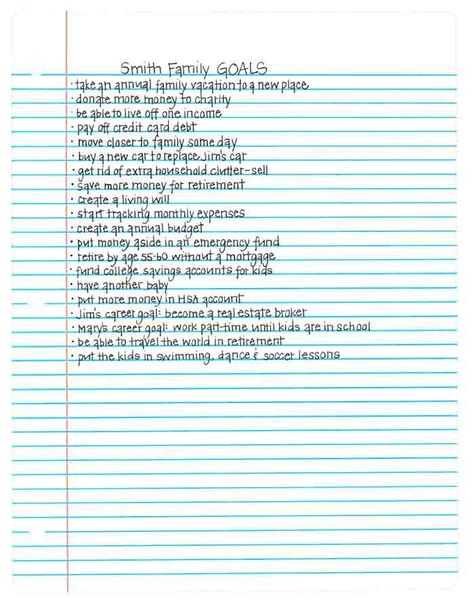 Smith Family GOALS
· take an annual family vacation to a new place
· donate more money to charity
· be able to live off one income
· pay off credit card debt
· move closer to family some day
· buy a new car to replace Jim's car
· get rid of extra household clutter-sell
· save more money for retirement
· create a living will
· start tracking monthly expenses
· create an annual budget
· put money aside in an emergency fund
· retire by age 55-60 without a mortgage
· fund college savings accounts for kids
· have another baby
· put more money in HSA account
· Jim's career goal: become a real estate broker
· Mary's career goal: work part-time until kids are in school
· be able to travel the world in retirement
· put the kids in swimming, dance & soccer lessons